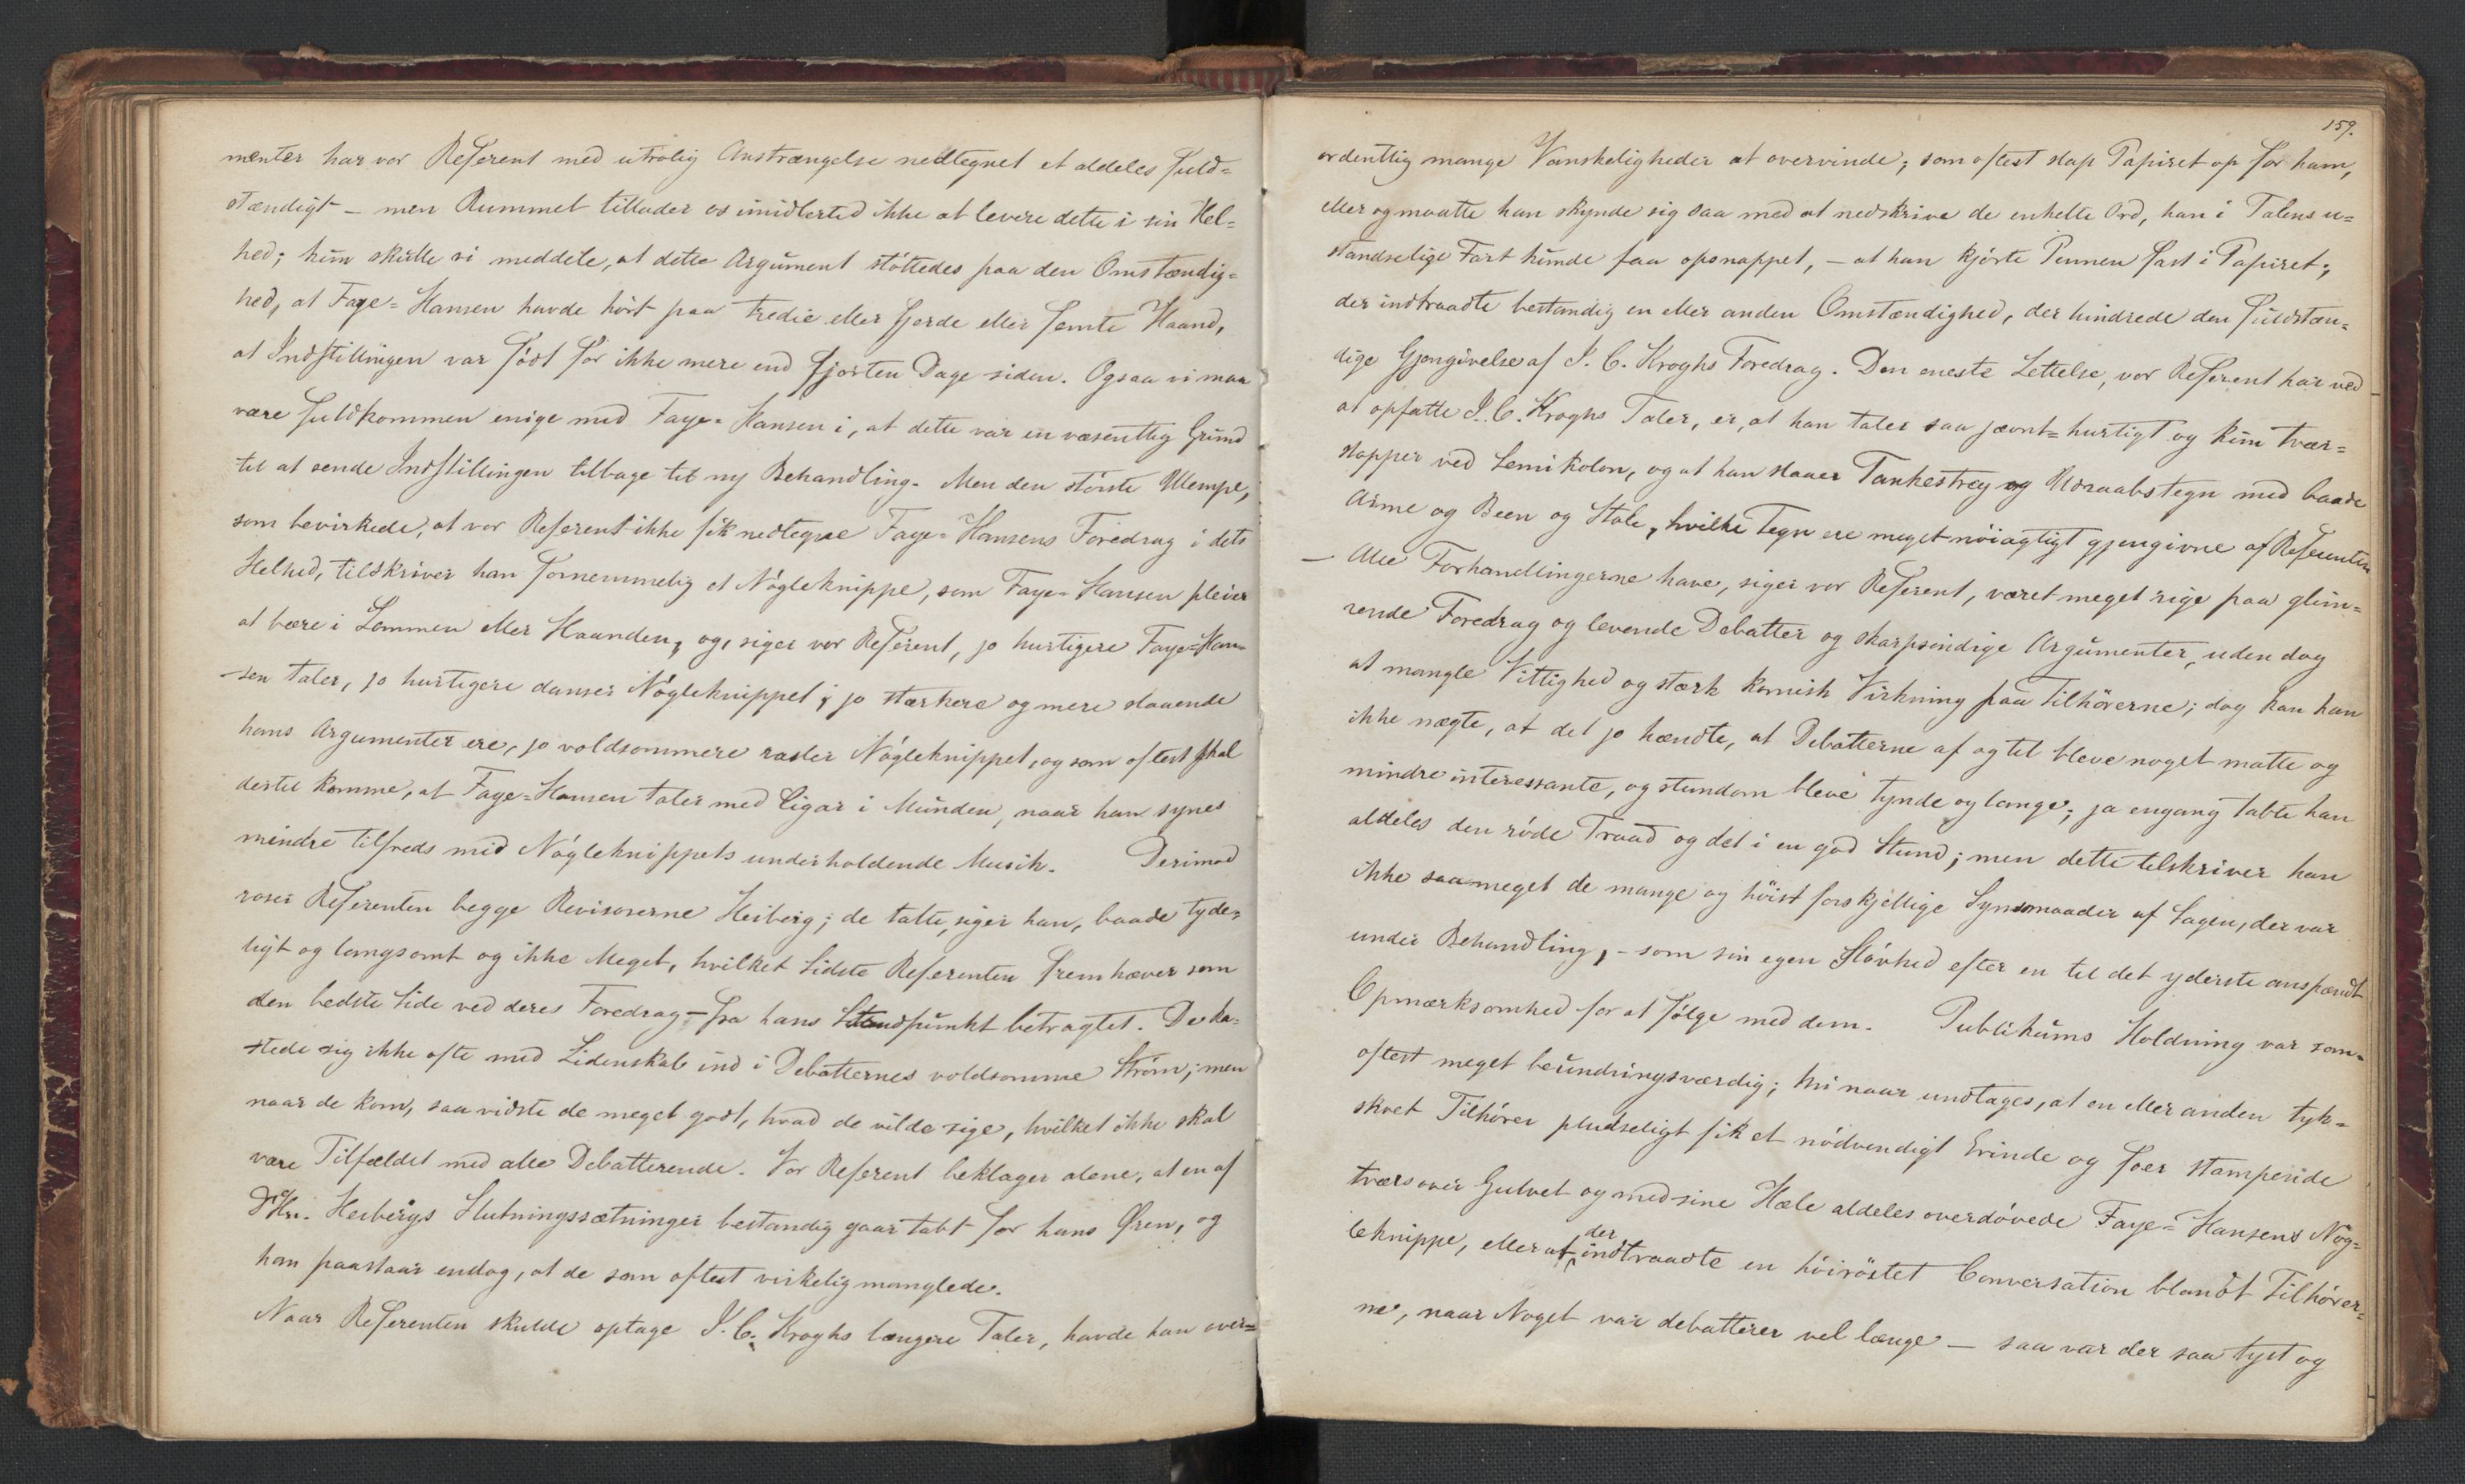 menter har vor Referent med utrolig Anstrængelse nedtegnet et aldeles fuld=
stændigt – men Rummet tillader os imidlertid ikke at levere dette i sin Hel=
hed; kun skulle vi meddele, at dette Argument støttedes paa den Omstændig=
hed, at Faye=Hansen havde hørt paa tredie eller fjerde eller femte Haand,
at Indstillingen var født for ikke mere end fjorten Dage siden. Ogsaa vi maa
være fuldkommen enige med Faye=Hansen i, at dette var en væsentlig Grund
til at sende Indstillingen tilbage til ny Behandling. Men den største Ulempe,
som bevirkede, at vor Referent ikke fik nedtegne Faye=Hansens Foredrag i dets
Helhed, tilskriver han fornemmelig et Nøgleknippe, som Faye=Hansen pleier
at bære i Lommen eller Haanden, og, siger vor Referent, jo hurtigere Faye=Han=
sen taler, jo hurtigere danser Nøgleknippet; jo stærkere og mere slaaende
hans Argumenter ere, jo voldsommere rasler Nøgleknippet, og som oftest skal
dertil komme, at Faye=Hansen taler med Cigar i Munden, naar han synes
mindre tilfreds med Nøgleknippets underholdende Musik. Derimod
roser Referenten begge Revisorerne Heiberg; de talte, siger han, baade tyde=
ligt og langsomt og ikke Meget, hvilket Sidste Referenten fremhæver som
den bedste Side ved deres Foredrag – fra hans Standpunkt betragtet. De ka=
stede sig ikke ofte med Lidenskab ind i Debatternes voldsomme Strøm; men
naar de kom, saa vidste de meget godt, hvad de vilde sige, hvilket ikke skal
være Tilfældet med alle Debatterende. Vor Referent beklager alene, at en af
Hr. Heibergs Slutningssætninger bestandig gaar tabt for hans Øren, og
han paastaar endog, at de som oftest virkelig manglede.
Naar Referenten skulde optage J. C. Kroghs længere Taler, havde han over=
159.
ordentlig mange Vanskeligheder at overvinde; som oftest slap Papiret op for ham,
eller og maatte han skynde sig saa med at nedskrive de enkelte Ord, han i Talens u=
standselige Fart kunde faa opsnappet, – at han kjørte Pennen fast i Papiret;
der indtraadte bestandig en eller anden Omstændighed, der hindrede den fuldstæn=
dige Gjengivelse af J. C. Kroghs Foredrag. Den eneste Lettelse, vor Referent har ved
at opfatte J. C. Kroghs Taler, er, at han taler saa jævnt=hurtigt og kun tvær=
stopper ved Semikolon, og at han slaaer Tankestreg og Udraabstegn med baade
Arme og Been og Stole, hvilke Tegn ere meget nøiagtigt gjengivne af Referenten
– Alle Forhandlingerne have, siger vor Referent, været meget rige paa glim=
rende Foredrag og levende Debatter og skarpsindige Argumenter, uden dog
at mangle Vittighed og stærk komisk Virkning paa Tilhørerne; dog kan han
ikke nægte, at det jo hændte, at Debatterne af og til bleve noget matte og
mindre interessante, og stundom bleve tynde og lange; ja engang tabte han
aldeles den røde Traad og det i en god Stund; men dette tilskriver han
ikke saameget de mange og høist forskjellige Synsmaader af Sagen, der var
under Behandling, – som sin egen Sløvhed efter en til det yderste anspændt
Opmærksomhed for at følge med dem. Publikums Holdning var som=
oftest meget beundringsværdig; thi naar undtages, at en eller anden tyk=
skoet Tilhører pludseligt fik et nødvendigt Erinde og foer stampende
tværs over Gulvet og med sine Hæle aldeles overdøvede Faye=Hansens Nøg=
leknippe, eller at der indtraadte en høirøstet Conversation blandt Tilhører=
ne, naar Noget var debatterer vel længe – saa var der saa tyst og